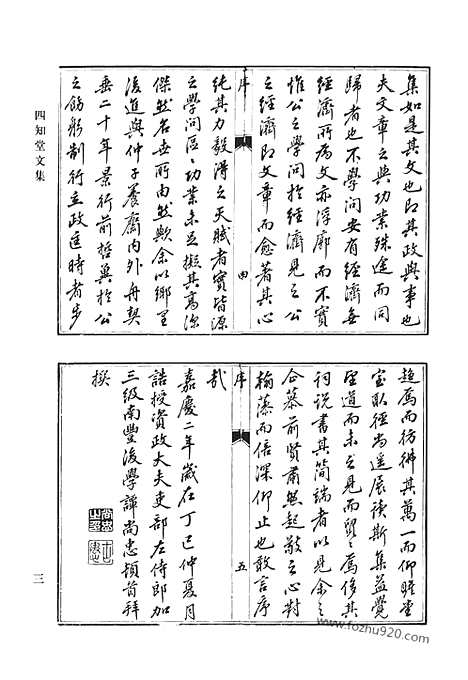 四知堂文集
集如是其文也即其政與事也
夫文章之與功業殊途而同
歸者也不學問安有經濟無
經濟所為文亦浮廓而不實
惟公之學問於經濟見之公
之經濟即文章而愈著其心
序 四
純其力毅得之天賦者實皆源
之學問區〻功業未足擬其高深
傑然名世所由然歟余以鄉里
後進與仲子養齋內外舟契
垂二十年景行前哲冀於公
之飭躬制行立政匡時者步
趨焉而彷彿其萬一而仰瞻堂
室臥徑尚遙展讀斯集益覺
望道而未之見而貿〻焉侈其
詞說書其簡端者以見余之
企慕前賢肅然起敬之心對
翰藻而倍深仰止也敢言序
序 五
哉
嘉慶二年歲在丁巳仲夏月
誥授資政大夫吏部左侍郎加
三級南豐後學譚尚忠頓首拜
撰
三
www.fozhu920.com